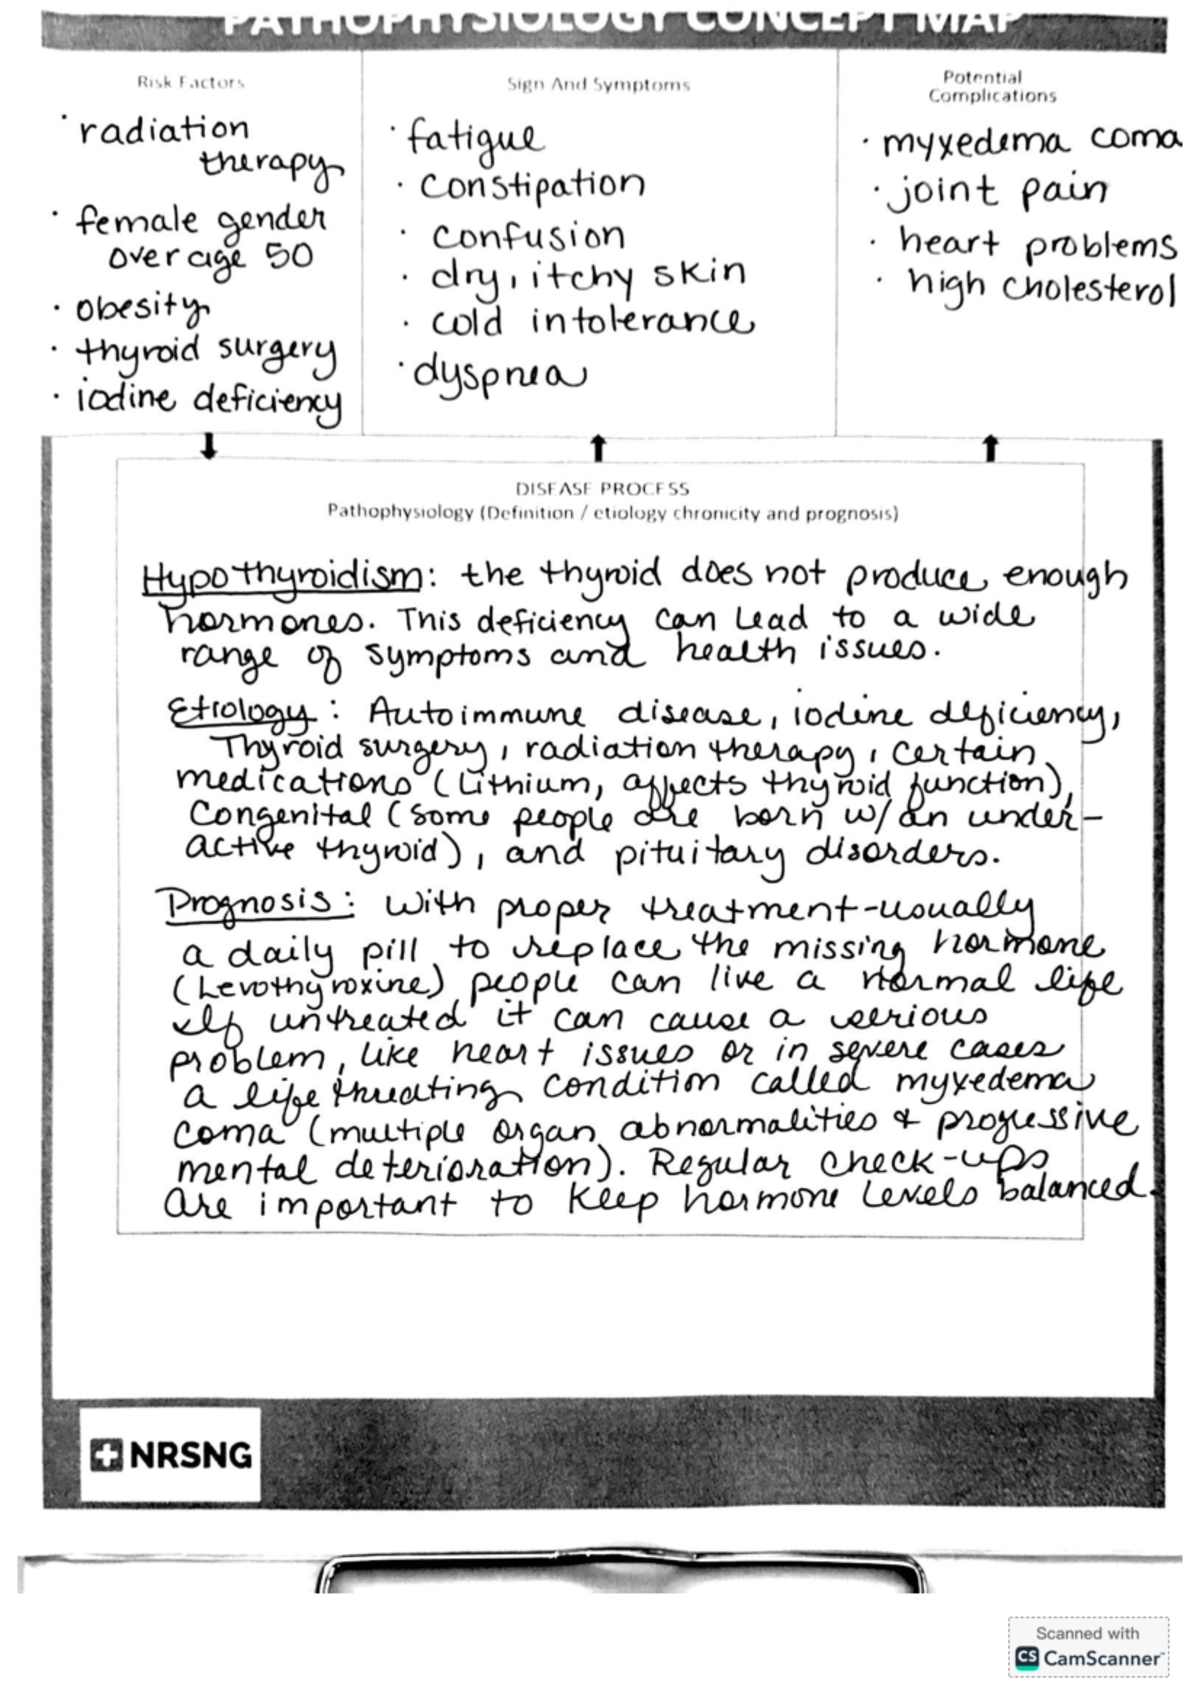 PATHOPHYSIOLOGY CONCEPT MAP
Risk Factors
· radiation
therapy
· female gender
over age 50
· obesity
· thyroid surgery
· iodine deficiency
Sign And Symptoms
· fatigue
· constipation
· confusion
· dry, itchy skin
· cold intolerance
· dyspnea
Potential
Complications
· myxedema coma
· joint pain
· heart problems
· high cholesterol
DISEASE PROCESS
Pathophysiology (Definition / etiology chronicity and prognosis)
Hypothyroidism: the thyroid does not produce enough
hormones. This deficiency can lead to a wide
range of symptoms and health issues.
Etiology: Autoimmune disease, iodine deficiency,
Thyroid surgery, radiation therapy, certain
medications (Lithium, affects thyroid function),
Congenital (some people are born w/ an under-
active thyroid), and pituitary disorders.
Prognosis: With proper treatment-usually
a daily pill to replace the missing hormone
(Levothyroxine) people can live a normal life
If untreated it can cause a serious
problem, like heart issues or in severe cases
a life threating condition called myxedema
coma (multiple organ abnormalities & progressive
mental deterioration). Regular check-ups
are important to keep hormone levels balanced.
NRSNG
Scanned with
CS CamScanner